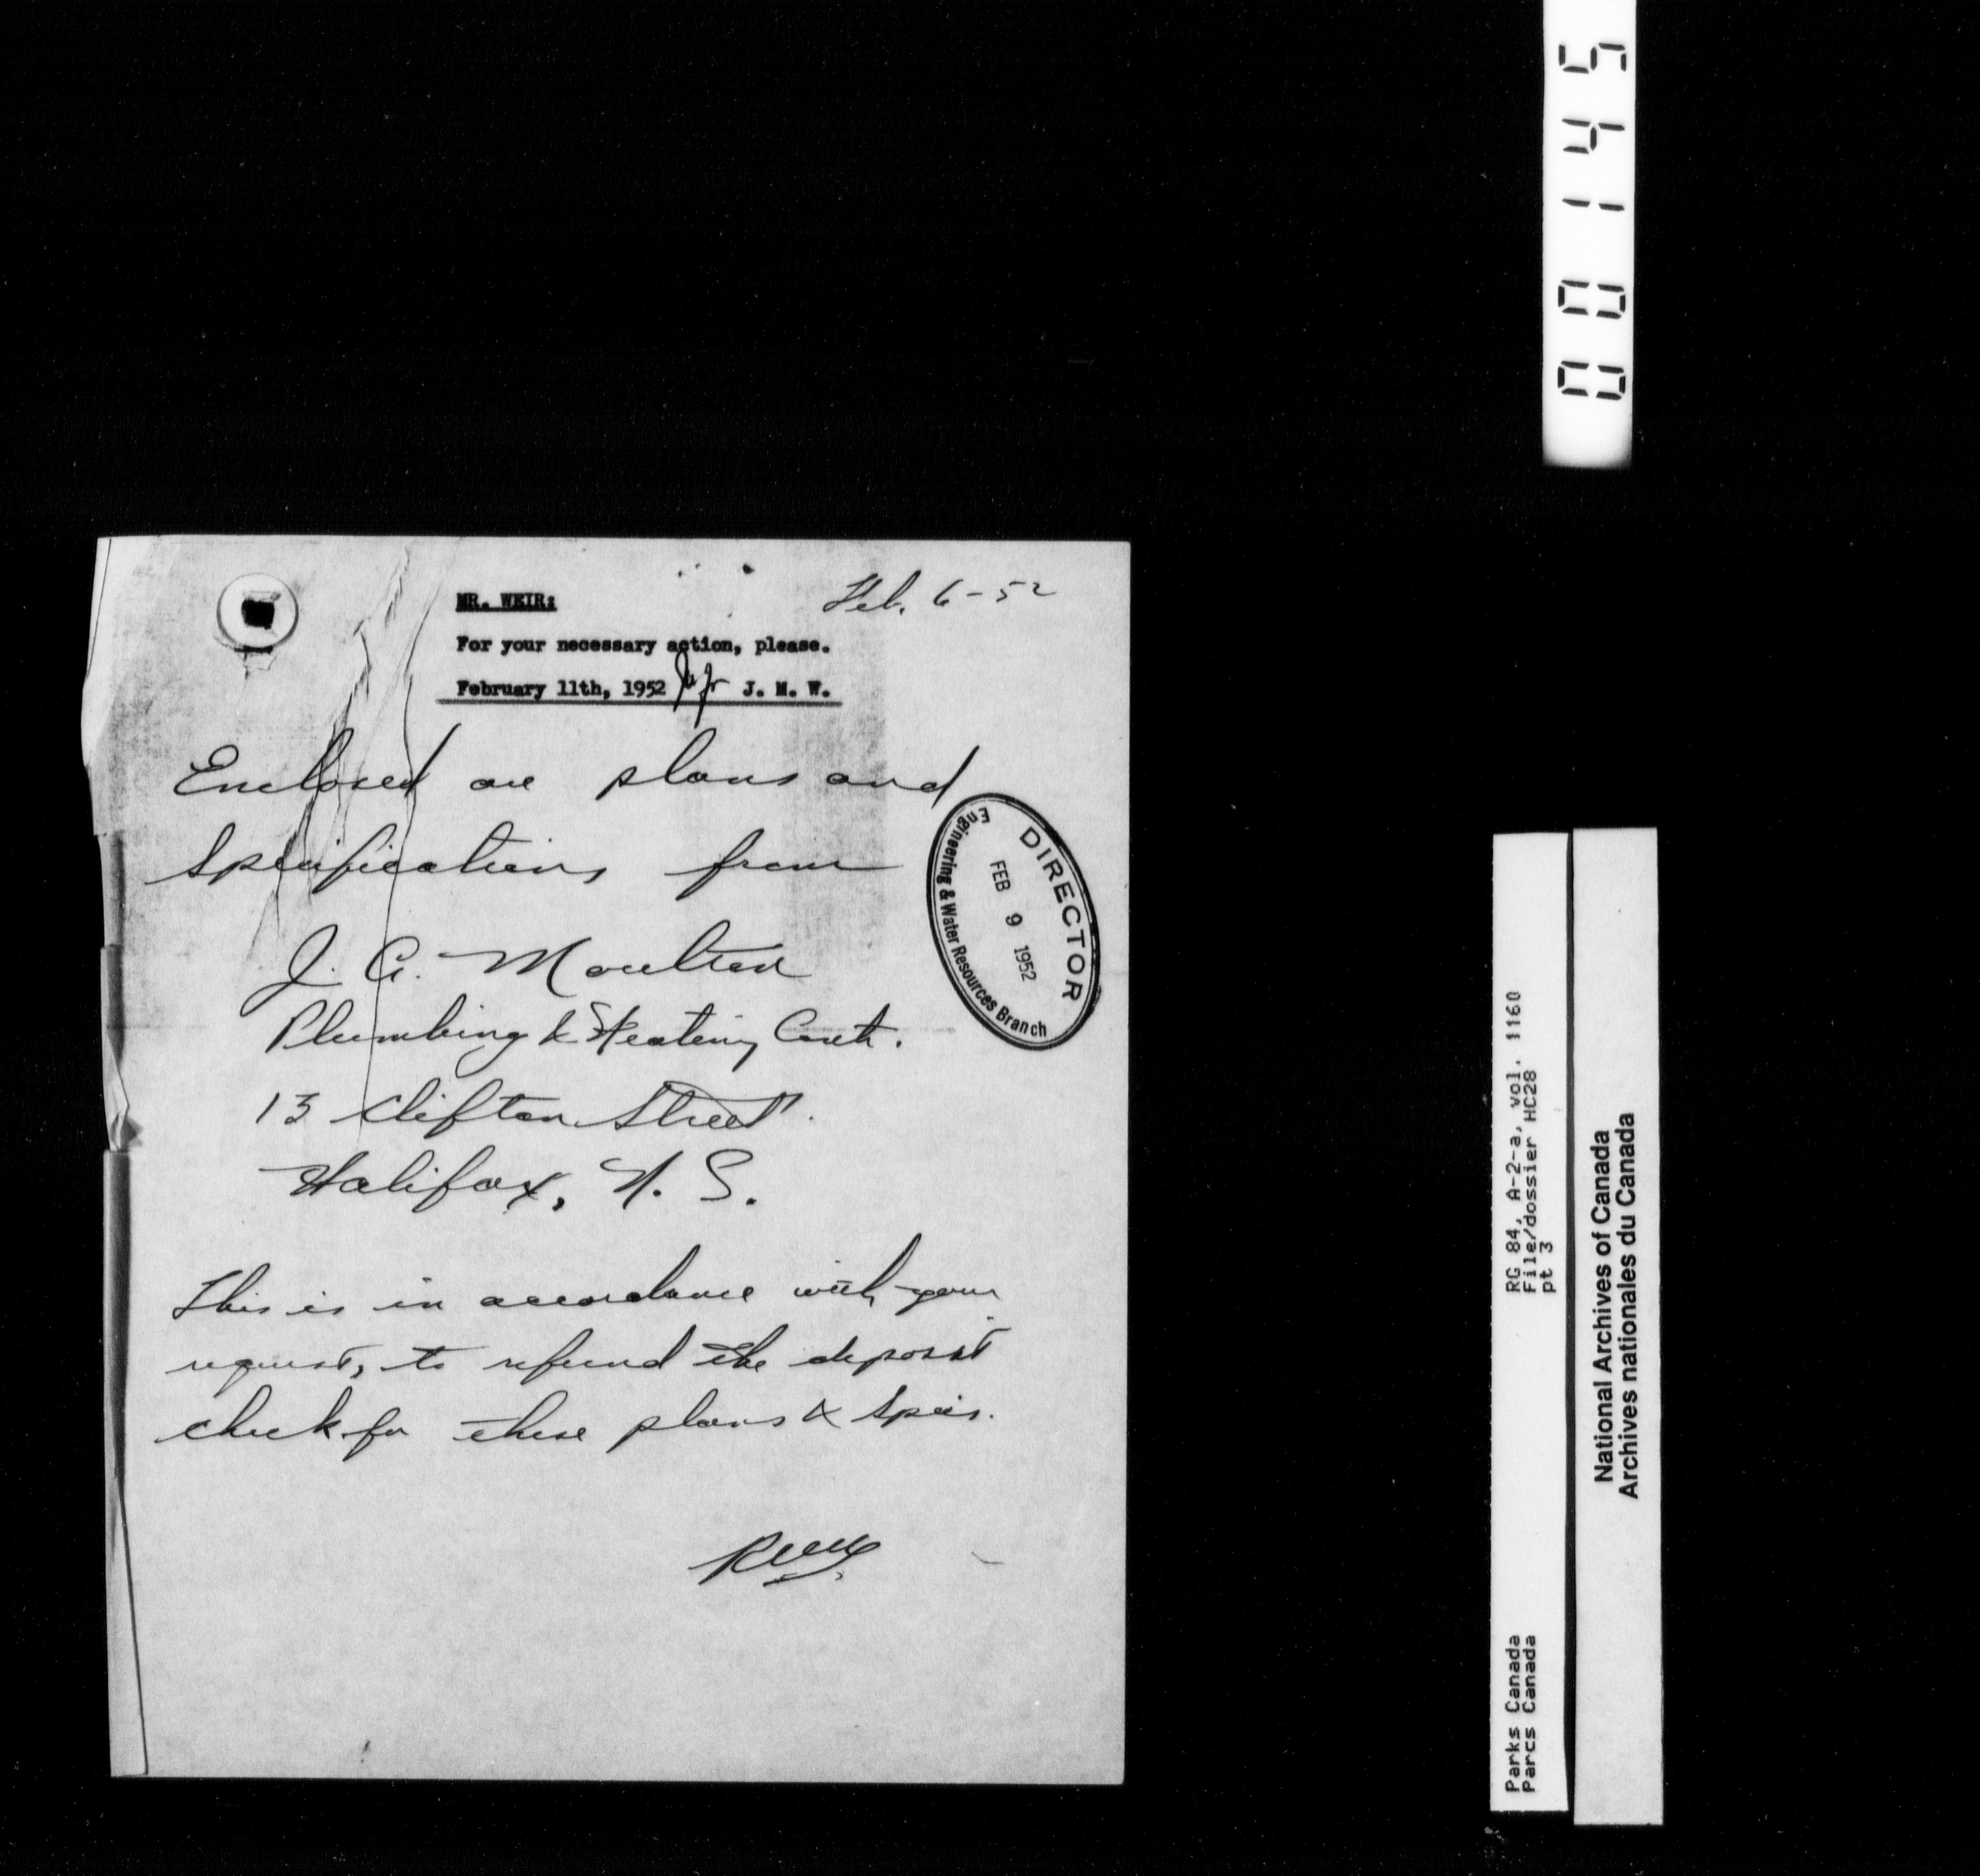 00145
Feb. 6-52
MR. WEIR:
For your necessary action, please.
February 11th, 1952 J. M. W.
Enclosed are plans and
Specifications from
J. G. Moulton
Plumbing & Heating Cont.
13 Clifton Street.
Halifax, N. S.
This is in accordance with your
request, to refund the deposit
check for these plans & specs.
DIRECTOR
FEB 9 1952
Engineering & Water Resources Branch
RG 84, A-2-a, vol. 1160
File/dossier HC28
pt 3
Parks Canada
Parcs Canada
National Archives of Canada
Archives nationales du Canada